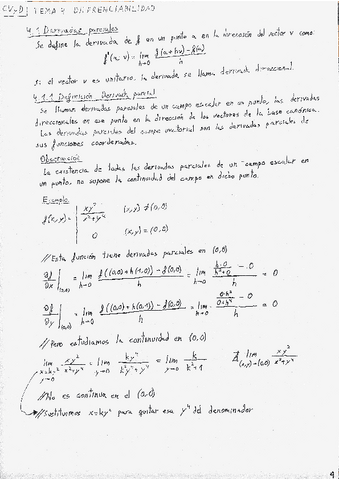 CVyD | TEMA 4 DIFERENCIABILIDAD
4.1 Derivadas parciales
Se define la derivada de f en un punto a en la dirección del vector v como
f'(a; v) = lim h→0 f(a+hv) - f(a) / h
Si el vector v es unitario, la derivada se llama derivada direccional.
4.1.1 Definición. Derivada parcial
Se llaman derivadas parciales de un campo escalar en un punto, las derivadas
direccionales en ese punto en la dirección de los vectores de la base canónica.
Las derivadas parciales del campo vectorial son las derivadas parciales de
sus funciones coordenadas.
Observación
La existencia de todas las derivadas parciales de un campo escalar en
un punto, no supone la continuidad del campo en dicho punto.
Ejemplo
f(x,y) = { xy² / x²+y⁴ (x,y) ≠ (0,0)
0 (x,y) = (0,0)
//Esta función tiene derivadas parciales en (0,0)
∂f/∂x |(0,0) = lim h→0 f((0,0)+h(1,0)) - f(0,0) / h = lim h→0 (h·0 / h²+0 - 0) / h = 0
∂f/∂y |(0,0) = lim h→0 f((0,0)+h(0,1)) - f(0,0) / h = lim h→0 (0·h² / 0+h⁴ - 0) / h = 0
//Pero estudiamos la continuidad en (0,0)
lim x=ky² y→0 xy² / x²+y⁴ = lim y→0 ky⁴ / k²y⁴+y⁴ = lim y→0 k / k²+1 ∄ lim (x,y)→(0,0) xy² / x²+y⁴
//No es continua en el (0,0)
//Sustituimos x=ky² para quitar esa y⁴ del denominador
4